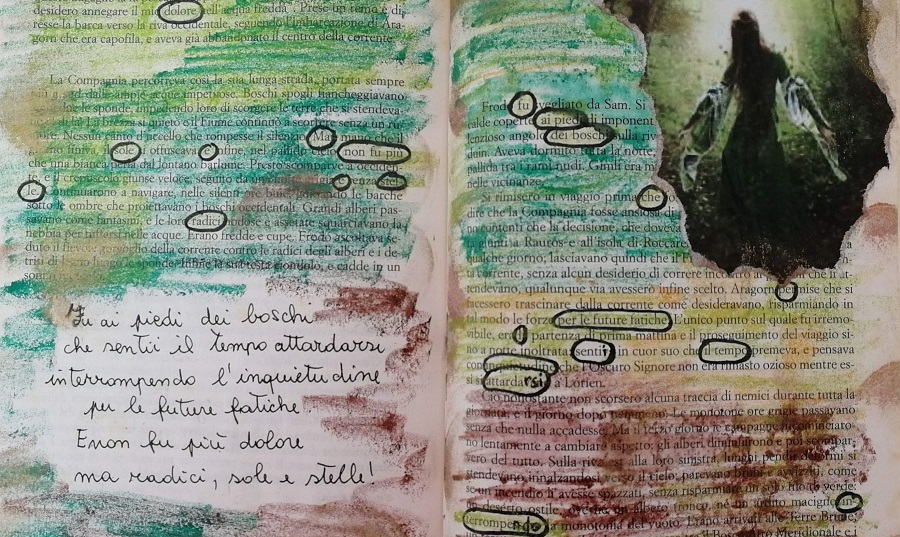 desidero annegare il mio dolore nell'acqua fredda". Prese un remo e di-
resse la barca verso la riva occidentale, seguendo l'imbarcazione di Ara-
gorn che era capofila, e aveva già abbandonato il centro della corrente.
La Compagnia percorreva così la sua lunga strada, portata sempre
dalle ampie acque impetuose. Boschi spogli fiancheggiavano
le sponde, impedendo loro di scorgere le terre che si stendeva-
La brezza si quietò e il Fiume continuò a scorrere senza un ru-
Nessun canto d'uccello che rompesse il silenzio. Ma
il sole offuscava nel pallido non fu più
che una bianca dal lontano bagliore. Presto scomparve a occidente
e il crepuscolo giunse veloce, seguito da senza stel-
le. Continuarono a navigare, nelle silenti e buie le barche
sotto le ombre che proiettavano i boschi occidentali. Grandi alberi pas-
savano come fantasmi, e le loro radici nodose e assetate squarciavano la
nebbia per tuffarsi nelle acque. Erano fredde e cupe. Frodo ascoltava
della corrente contro le radici degli alberi e i de-
triti di legno lungo le sponde. Infine la sua testa ciondolò, e cadde in un
Fu ai piedi dei boschi
che sentii il tempo attardarsi
interrompendo l'inquietudine
per le future fatiche
E non fu più dolore
ma radici, sole e stelle!
Frodo fu svegliato da Sam. Si
calde coperte ai piedi di imponent
lenzioso angolo dei boschi sulla riv
Aveva dormito tutta la notte,
pallida tra i rami nudi. Gimli era
nelle vicinanze.
Si rimisero in viaggio prima che
dire che la Compagnia fosse ansiosa di
contenti che la decisione, che dovev
Rauros e all'isola di Roccar
qualche giorno; lasciavano quindi che il F
corrente, senza alcun desiderio di correre incontro che li at-
tendevano, qualunque via avessero infine scelto. Aragorn permise che si
facessero trascinare dalla corrente come desideravano, risparmiando in
tal modo le forze per le future fatiche. L'unico punto sul quale fu irremo-
bile, era la partenza di prima mattina e il proseguimento del viaggio si-
no a notte inoltrata: sentiva in cuor suo che il tempo premeva, e pensava
che l'Oscuro Signore non era rimasto ozioso mentre es-
si attardavano a Lórien.
rsi
Ciò nonostante non scorsero alcuna traccia di nemici durante tutta la
giornata, e il giorno dopo nemmeno. Le monotone ore grigie passavano
senza che nulla accadesse. Ma il terzo giorno le campagne incominciaro-
no lentamente a cambiare aspetto: gli alberi diminuirono e poi scompar-
vero del tutto. Sulla riva alla loro sinistra, lunghi pendii deformi si
stendevano innalzandosi verso il cielo; parevano bruni e avvizziti, come
se un incendio li avesse spazzati, senza risparmiare un solo filo di verde:
deserto ostile, un albero tronco, né un ardito macigno in-
terrompeva la monotonia del vuoto. Erano arrivati alle Terre Brune,
Meridionale e i